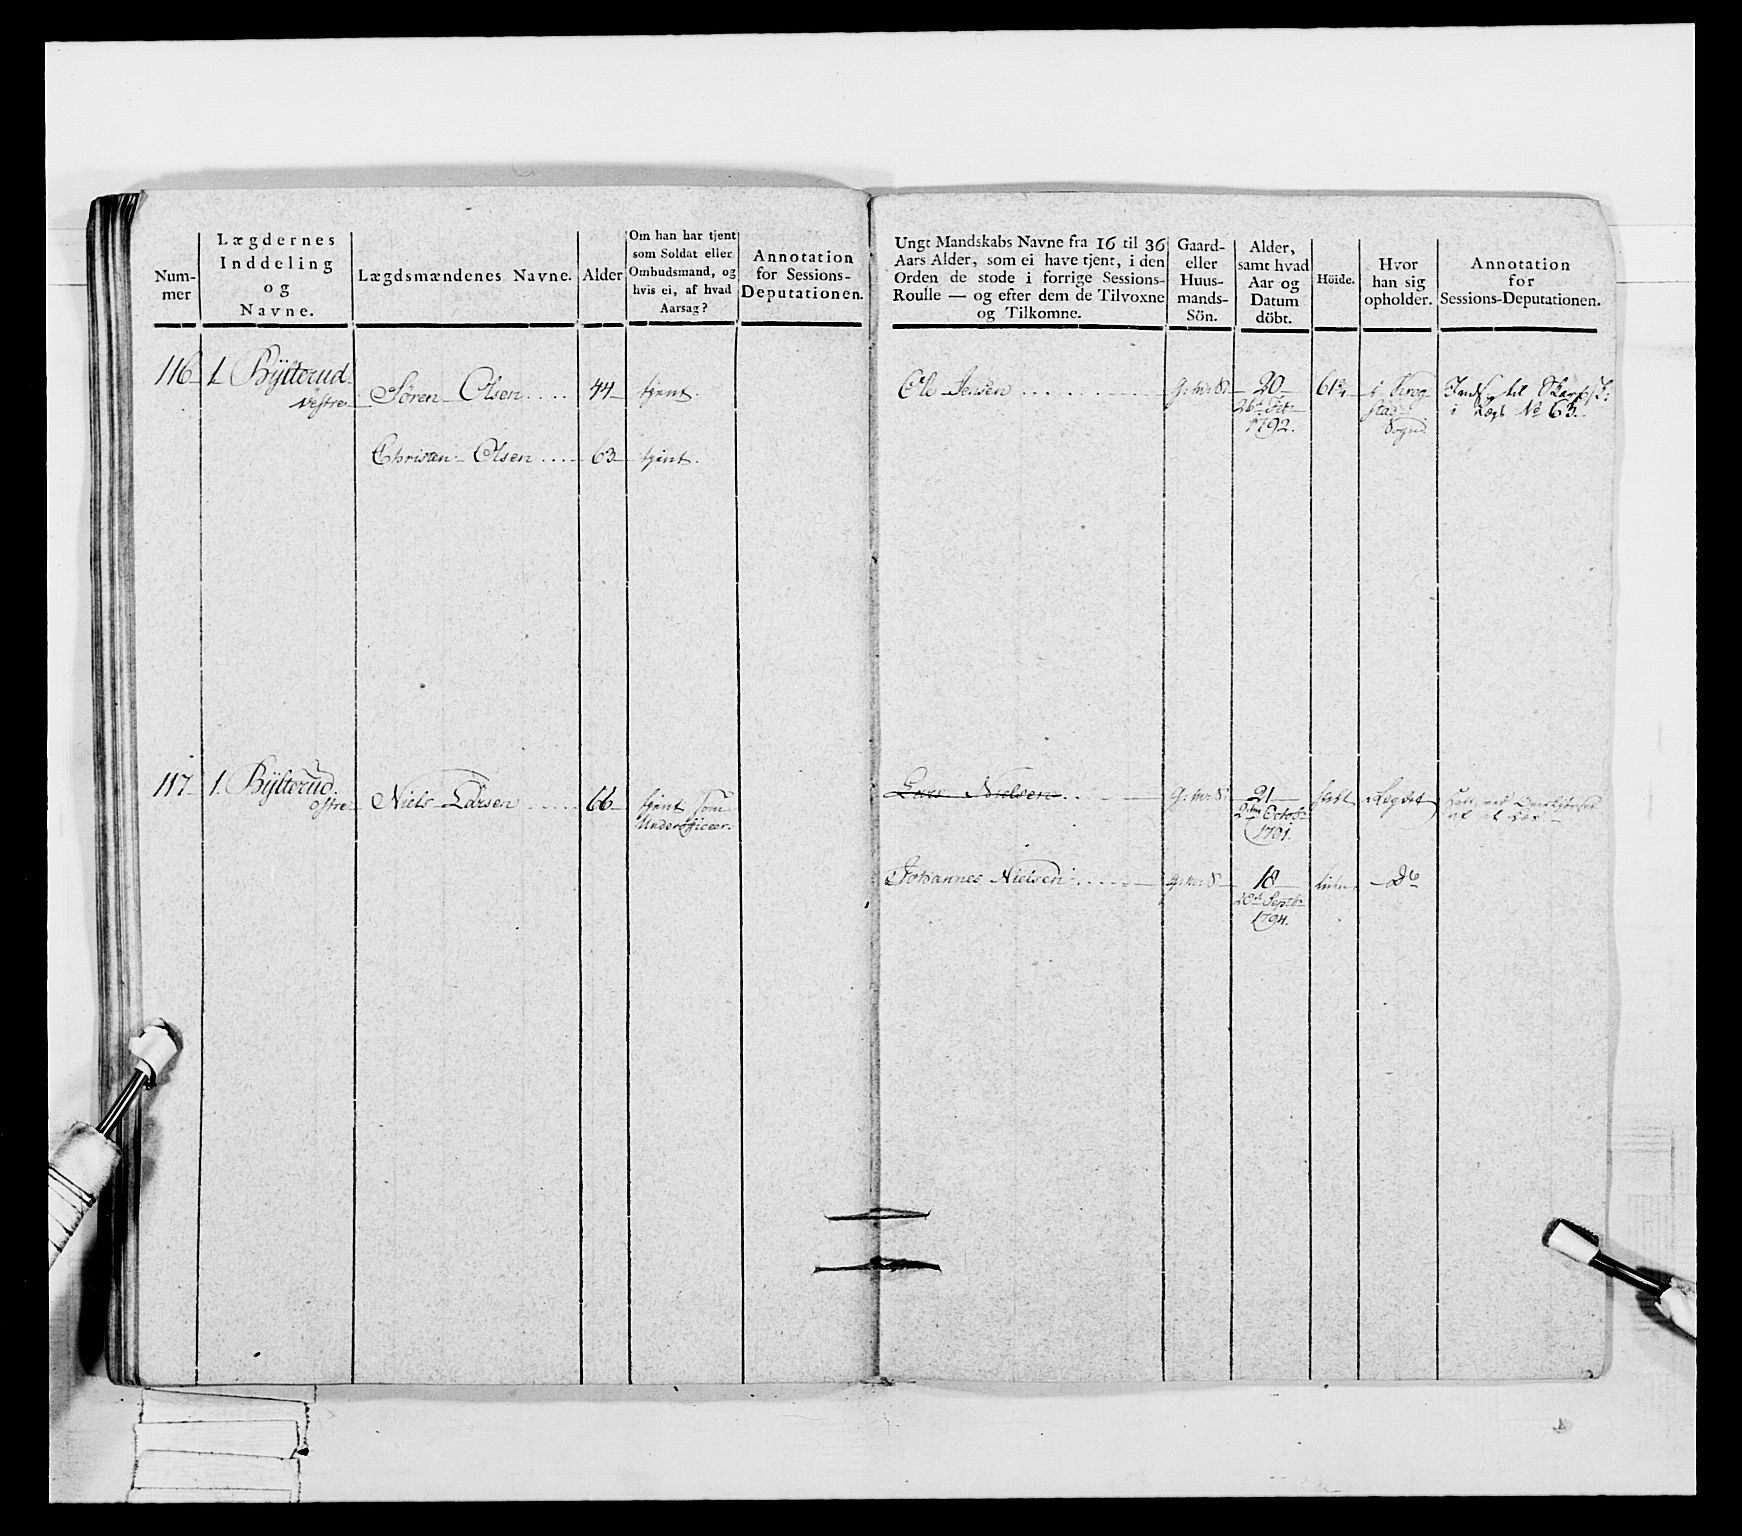 Num-
mer
Lægdernes
Inddeling
og
Navne.
Lægdsmændenes Navne.
Alder
Om han har tjent
som Soldat eller
Ombudsmand, og
hvis ei, af hvad
Aarsag?
Annotation
for Sessions-
Deputationen.
116
1 Bÿlterud
vestre
Sören Olsen
44
tjent.
Christen Olsen
63
tjent.
117
1. Bÿlterud.
østre
Niels Larsen
66
tjent som
Underofficeer.
Ungt Mandskabs Navne fra 16 til 36
Aars Alder, som ei have tjent, i den
Orden de stode i forrige Sessions-
Roulle — og efter dem de Tilvoxne
og Tilkomne.
Gaard-
eller
Huus-
mands-
Sön.
Alder,
samt hvad
Aar og
Datum
döbt.
Höide.
Hvor
han sig
opholder.
Annotation
for
Sessions-Deputationen.
Ole Jensen
G: m: S:
20
26
1792.
i Krog
stad
Sogn
til
i Lægd No 63.
Lars Nielsen
G: m: S:
21
2den Octob
1791.
Lægdet
Johannes Nielsen
G: m: S
18
28 Septb
1794.
liden
Do